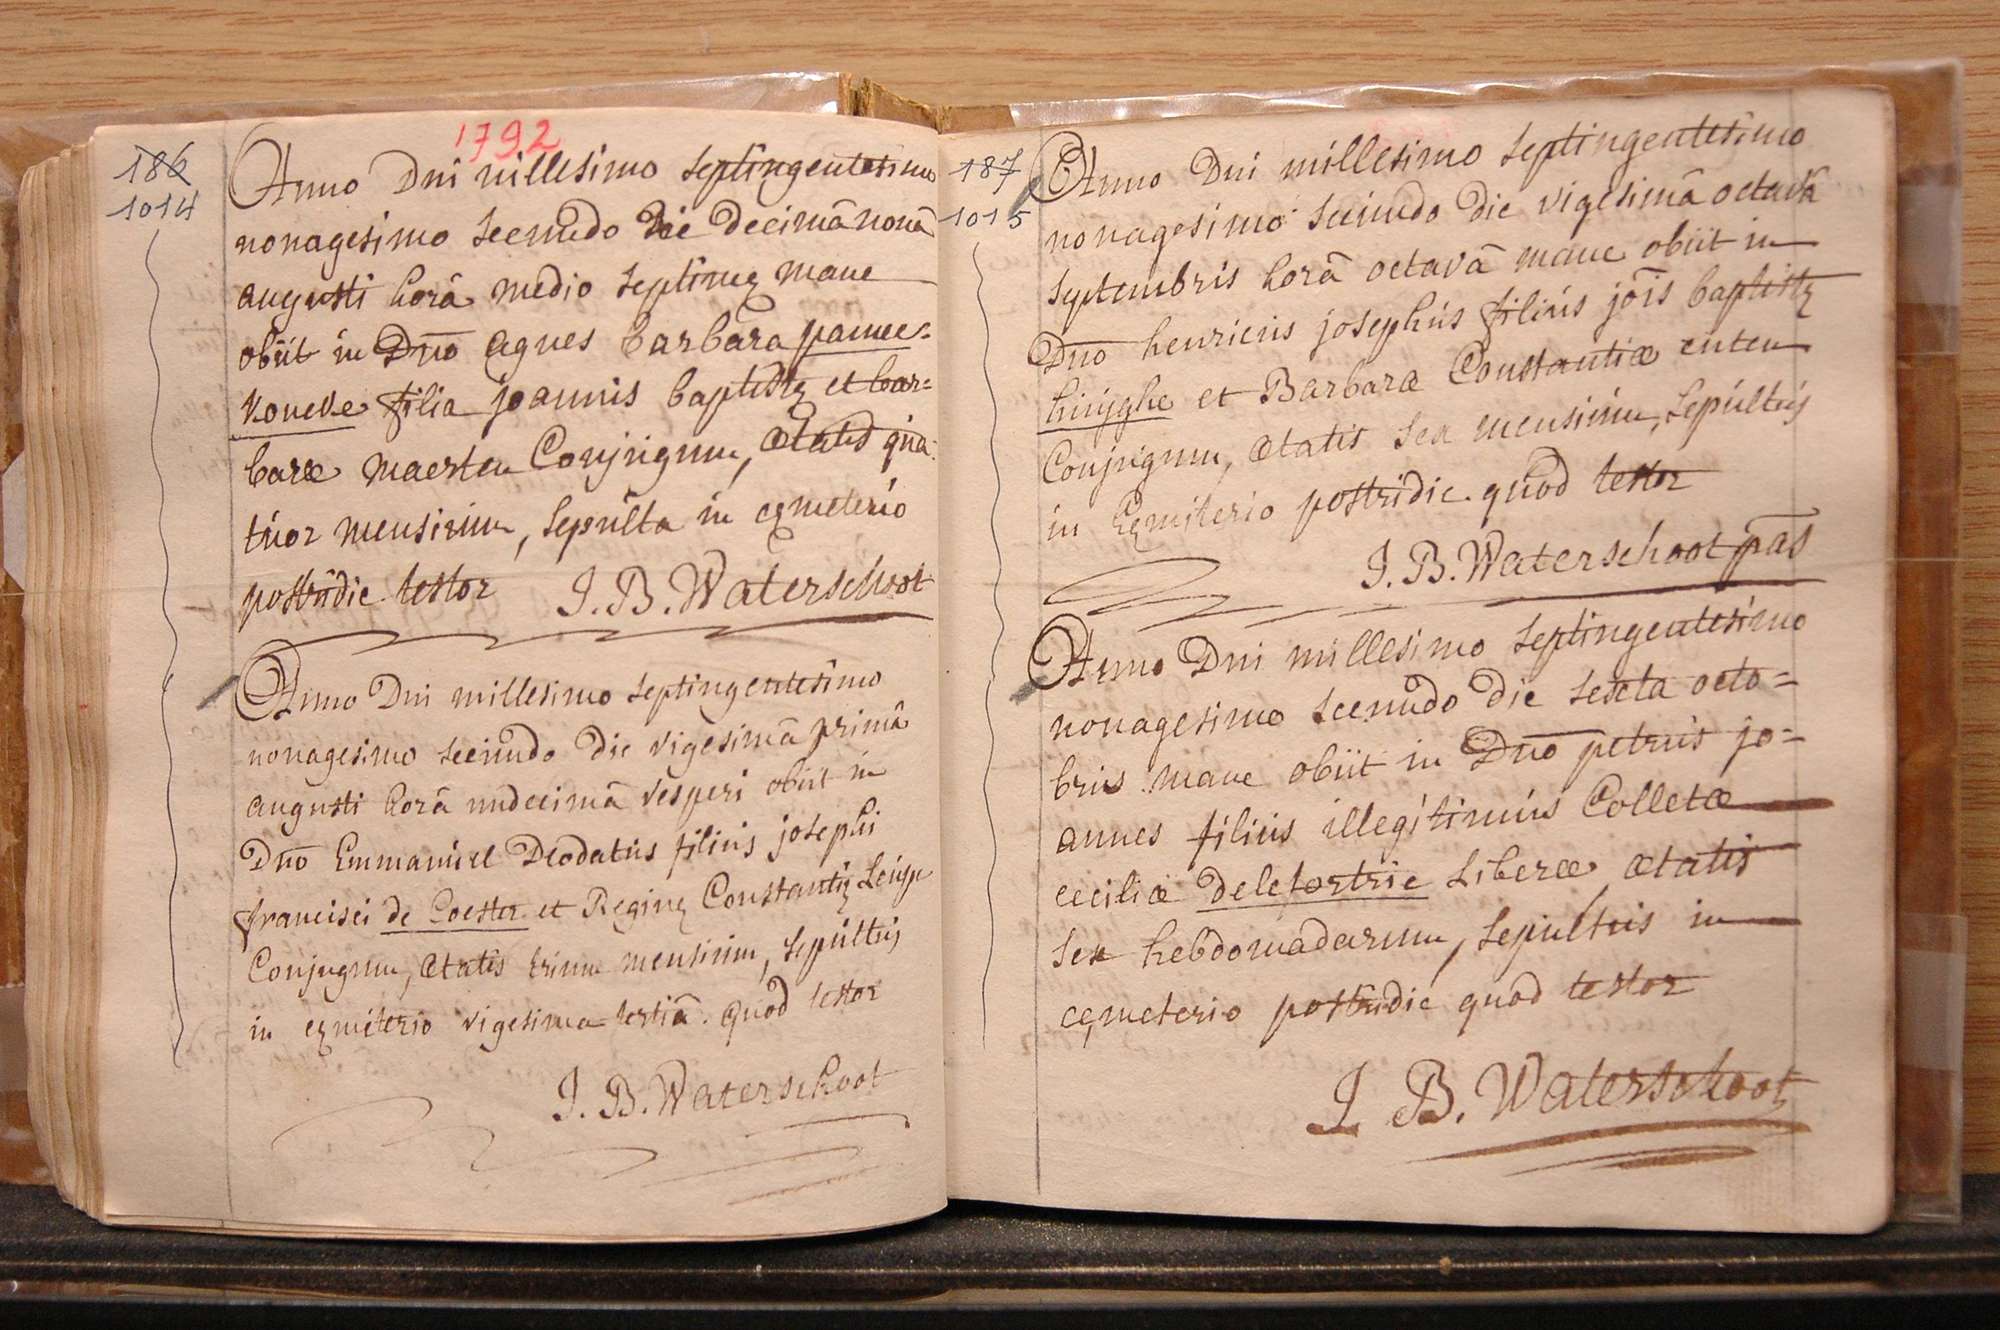 1792
186
1014
Anno Dni millesimo septingentesimo
nonagesimo secundo die decimâ nonâ
augusti horâ medio septimę mane
obiit in Dno agnes barbara pannee=
koneke filia joannis baptistę et bar=
baræ maerten Conjugum, ætatis qua=
tuor mensium, sepulta in cęmeterio
postridie testor J. B. Waterschoot
Anno Dni millesimo septingentesimo
nonagesimo secundo die vigesimâ primâ
augusti horâ undecimâ vesperi obiit in
Dno Emmanuel Deodatus filius josephi
francisci de Coester et Reginę Constantię
Conjugum, ætatis trium mensium, sepultus
in cęmiterio vigesima tertiâ. quod testor
J. B. Waterschoot
187
1015
Anno Dni millesimo septingentesimo
nonagesimo secundo die vigesimâ octavâ
septembris horâ octavâ mane obiit in
Dno henricus josephus filius jois baptistę
huijghe et Barbaræ Constantiæ
Conjugum, ætatis sex mensium, sepultus
in cęmiterio postridie. quod testor
J. B. Waterschoot pas
Anno Dni millesimo septingentesimo
nonagesimo secundo die sexta octo=
bris mane obiit in Dno petrus jo=
annes filius illegitimus Colletæ
ceciliæ delefortrie Liberæ, ætatis
sex hebdomadarum, sepultus in
cęmeterio postridie quod testor
J. B. Waterschoot